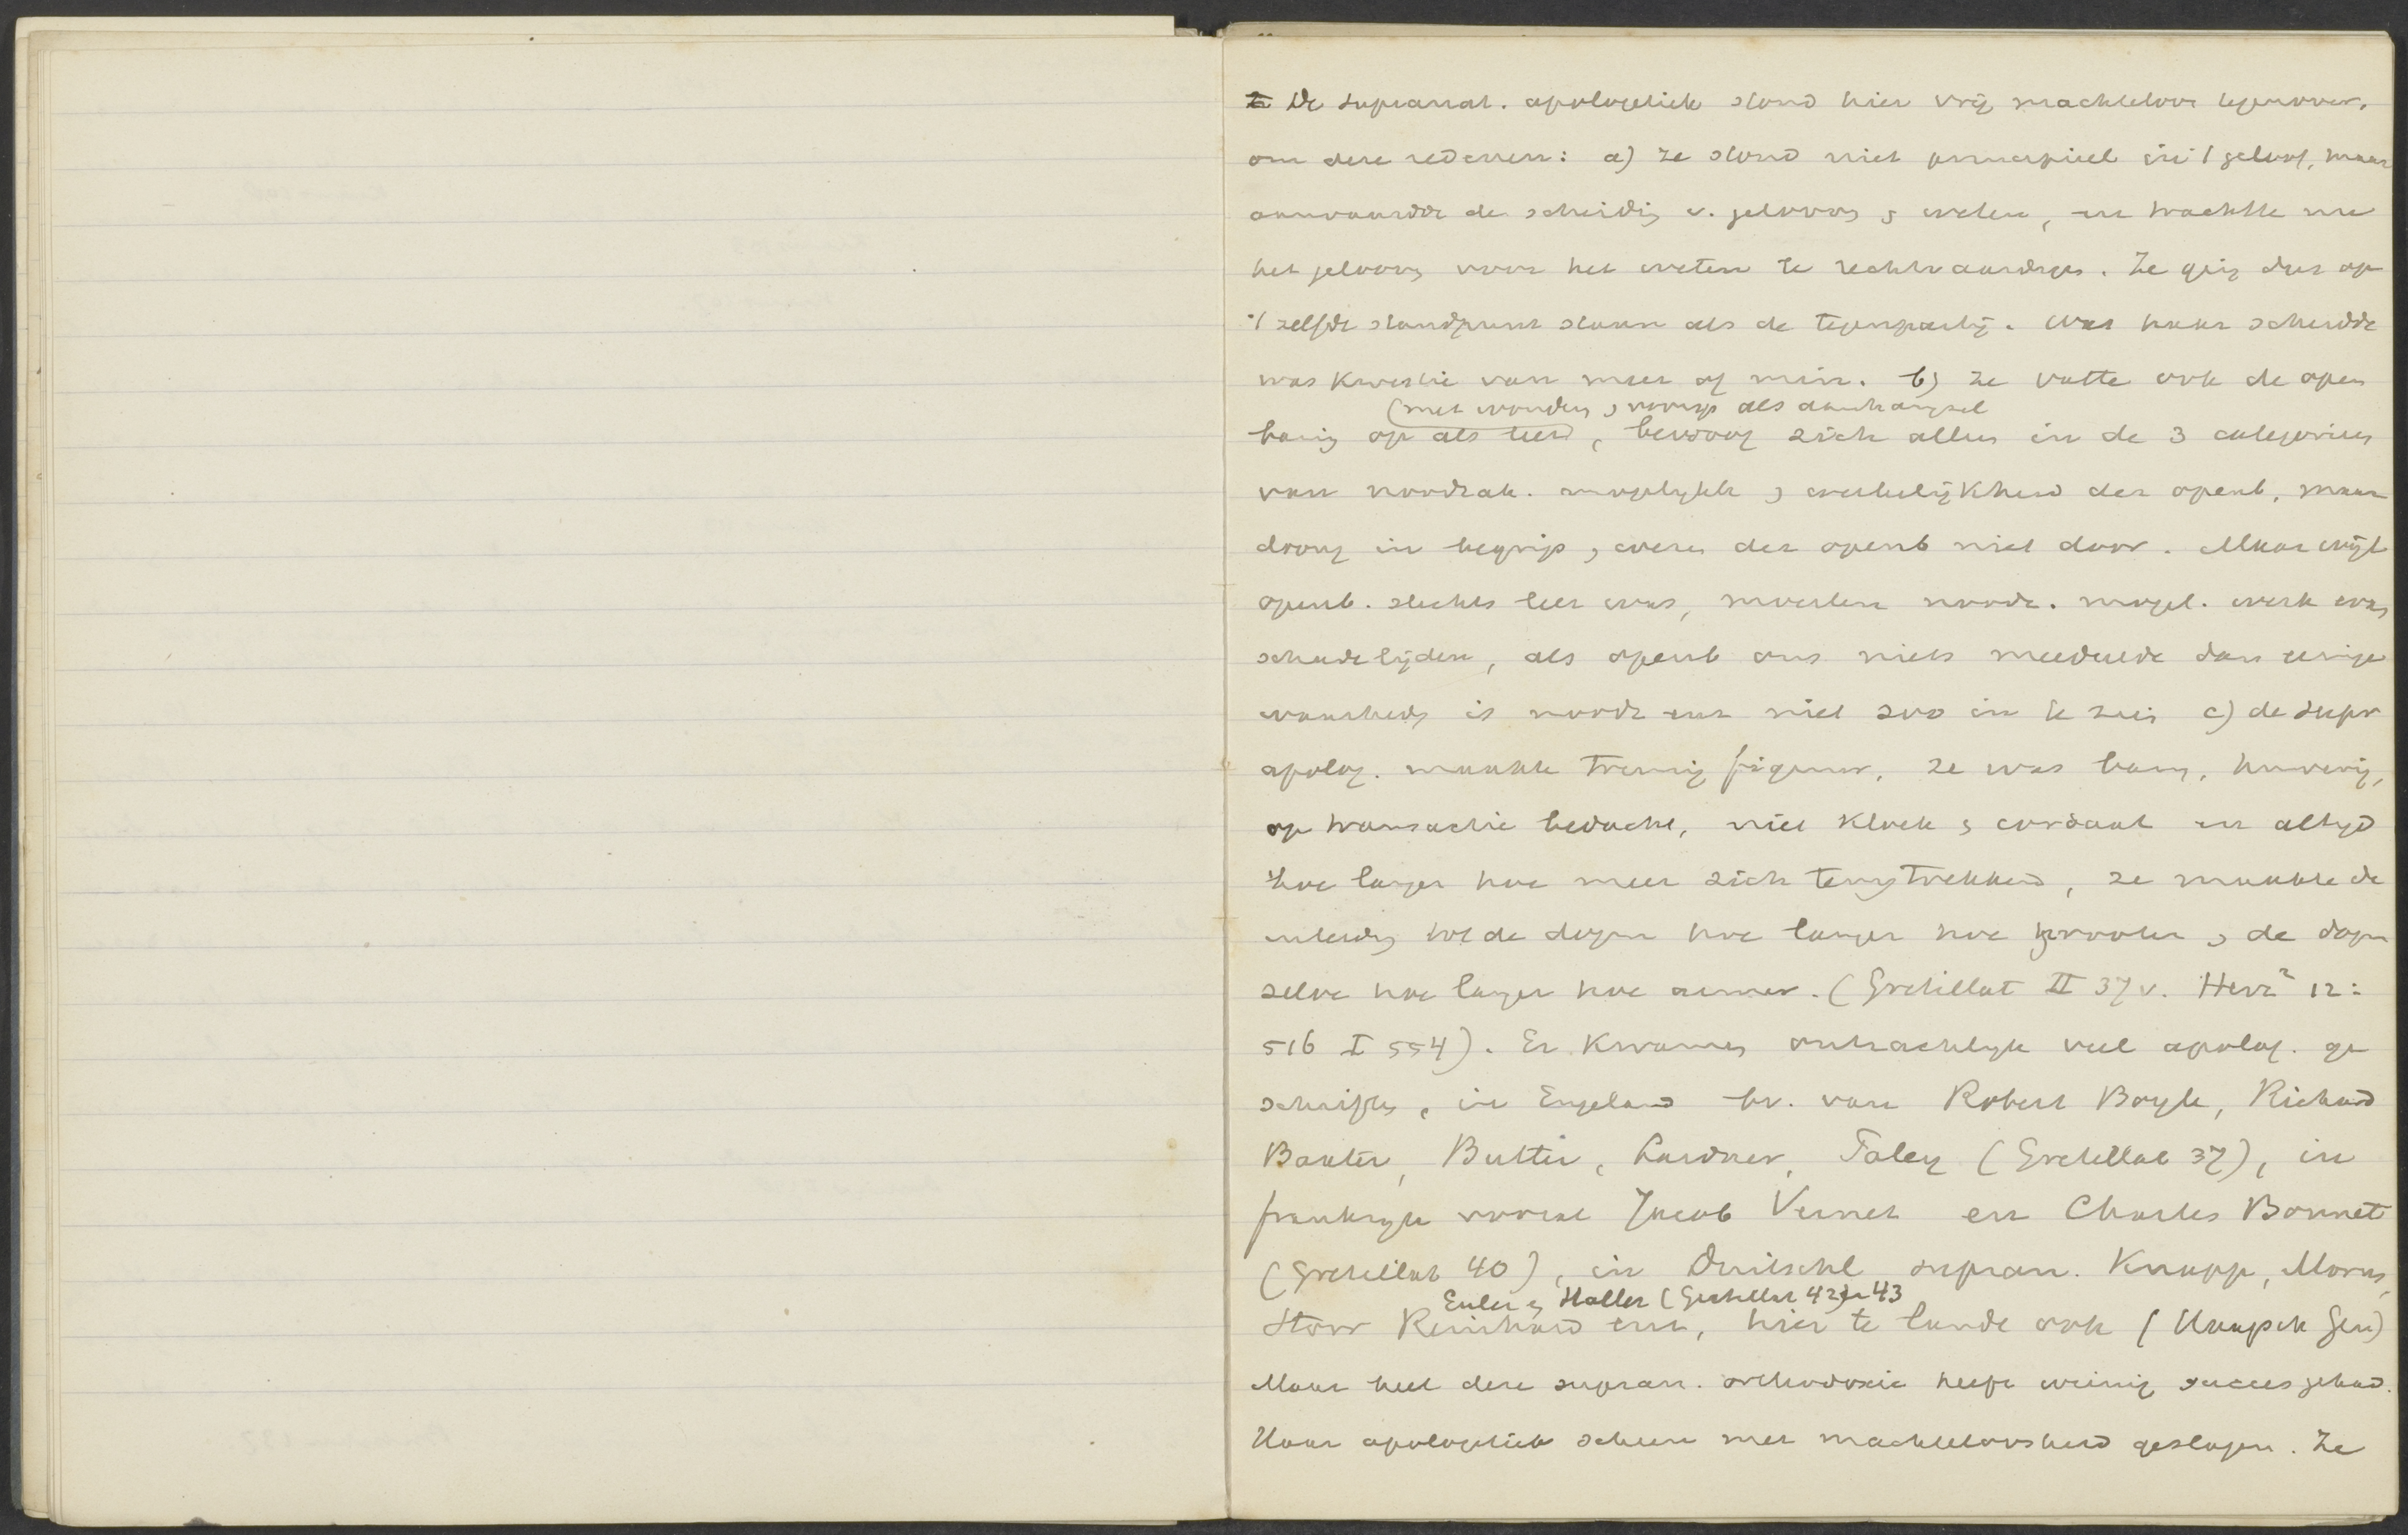 De supranat. apologetiek stond hier vrij machteloos tegenover.
om deze redenen: a) ze stond niet principieel in 't geloof, maar
aanvaardde de scheidig v. gelooven & weten, en trachtte nu
het gelooven voor het weten te rechtvaardigen. Ze ging dus op
't zelfde standpunt staan als de tegenpartij. Wat haar scheidde
was kwestie van meer of min. b) ze vatte ook de open
(met wonder & voorsp als aanhangsel
baring op als leer, bewoog zich alles in de 3 categorieen
van noodzak. mogelijkh & werkelijkheid der openb, maar
droong in begrip & wezen der openb niet door. Maar wijl
openb. slechts leer was, moesten noodz. mogel. werk
schade lijden, als openb ons niets meedeelde dan eenige
waarheden is noodz enz niet zoo in te zien c) de supr
apolog. maakte treurig figuur, ze was bang, huiverig,
op transactie bedacht, niet kloek & cordaat en altijd
hoe langer hoe meer zich terugtrekkend, ze maakte de
inleiding tot de dogm hoe langer hoe grooter & de dogm
zelve hoe langer hoe armer. (Gretillat II 37 v. Herz² 12:
516 I 554). Er kwamen ontzachlijk veel apolog. ge
schriften, in Engeland bv. van Robert Boyle, Richard
Baxter, Butler, Lardner, Paley (Gretillat 37), in
frankrijk vooral Jacob Vernet en Charles Bonnet
(Gretillat 40), in Duitschl supran. Knapp, Morus,
Euler & Haller (Gretillat 42) 43
Storr Reinhard enz, hier te lande ook (Haagsch Gen)
Maar heel deze supran. orthodoxie heeft weinig succes gehad.
Haar apologetiek scheen met machteloosheid geslagen. Ze